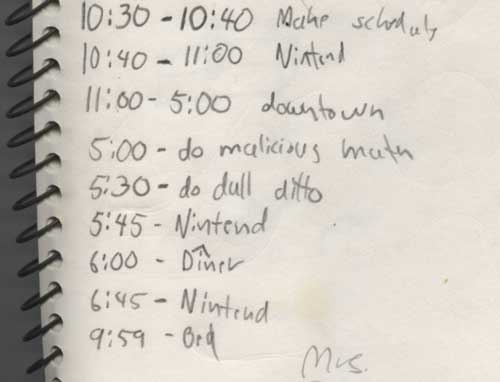 10:30 - 10:40 Make schoduls
10:40 - 11:00 Nintend
11:00 - 5:00 downtown
5:00 - do malicious math
5:30 - do dull ditto
5:45 - Nintend
6:00 - Diner
6:45 - Nintend
9:59 - Bed
Mrs.